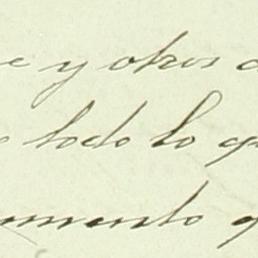 e y otros
todo lo q
amento q